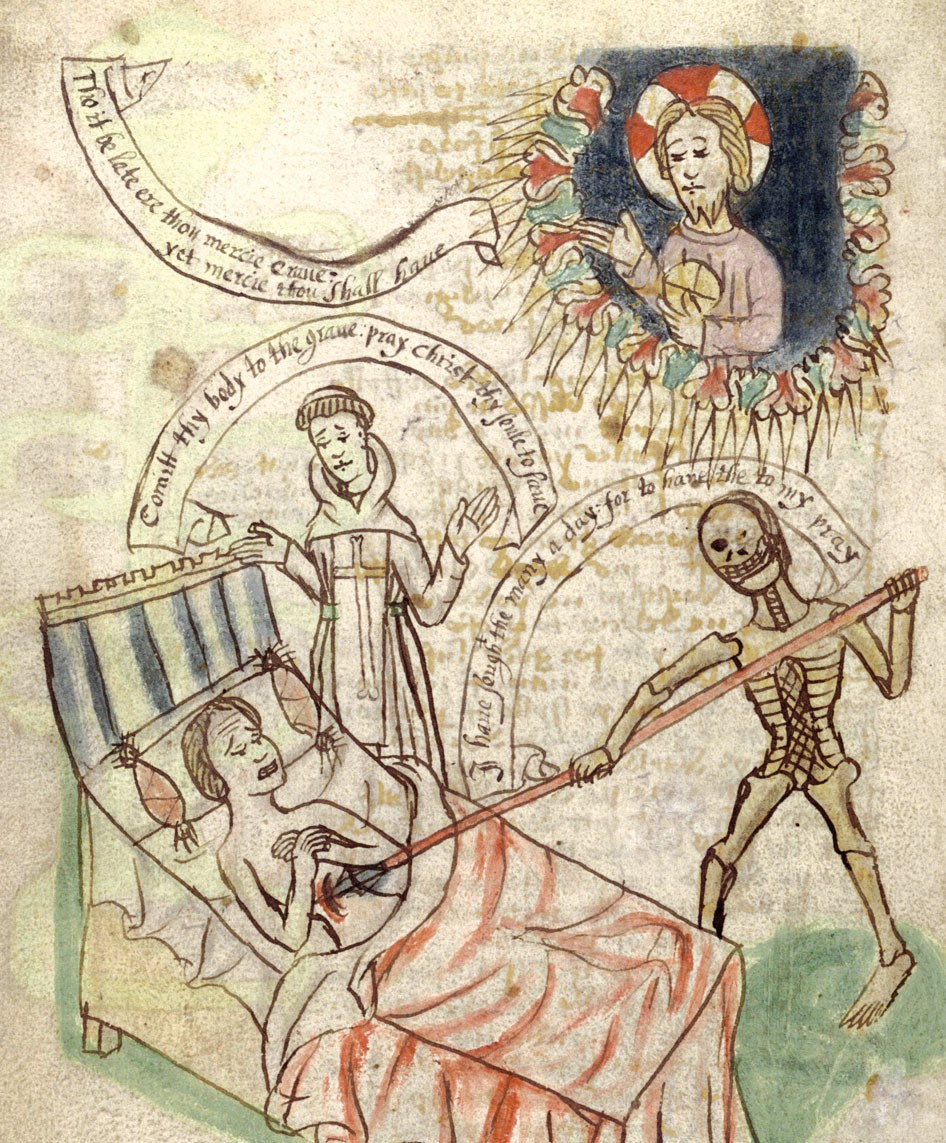 Tho it be late ere thou mercie crave:
yet mercie thou shall have
Comitt thy body to the grave: pray Christ thy soule to save
I have sought the many a day: for to have the to my pray